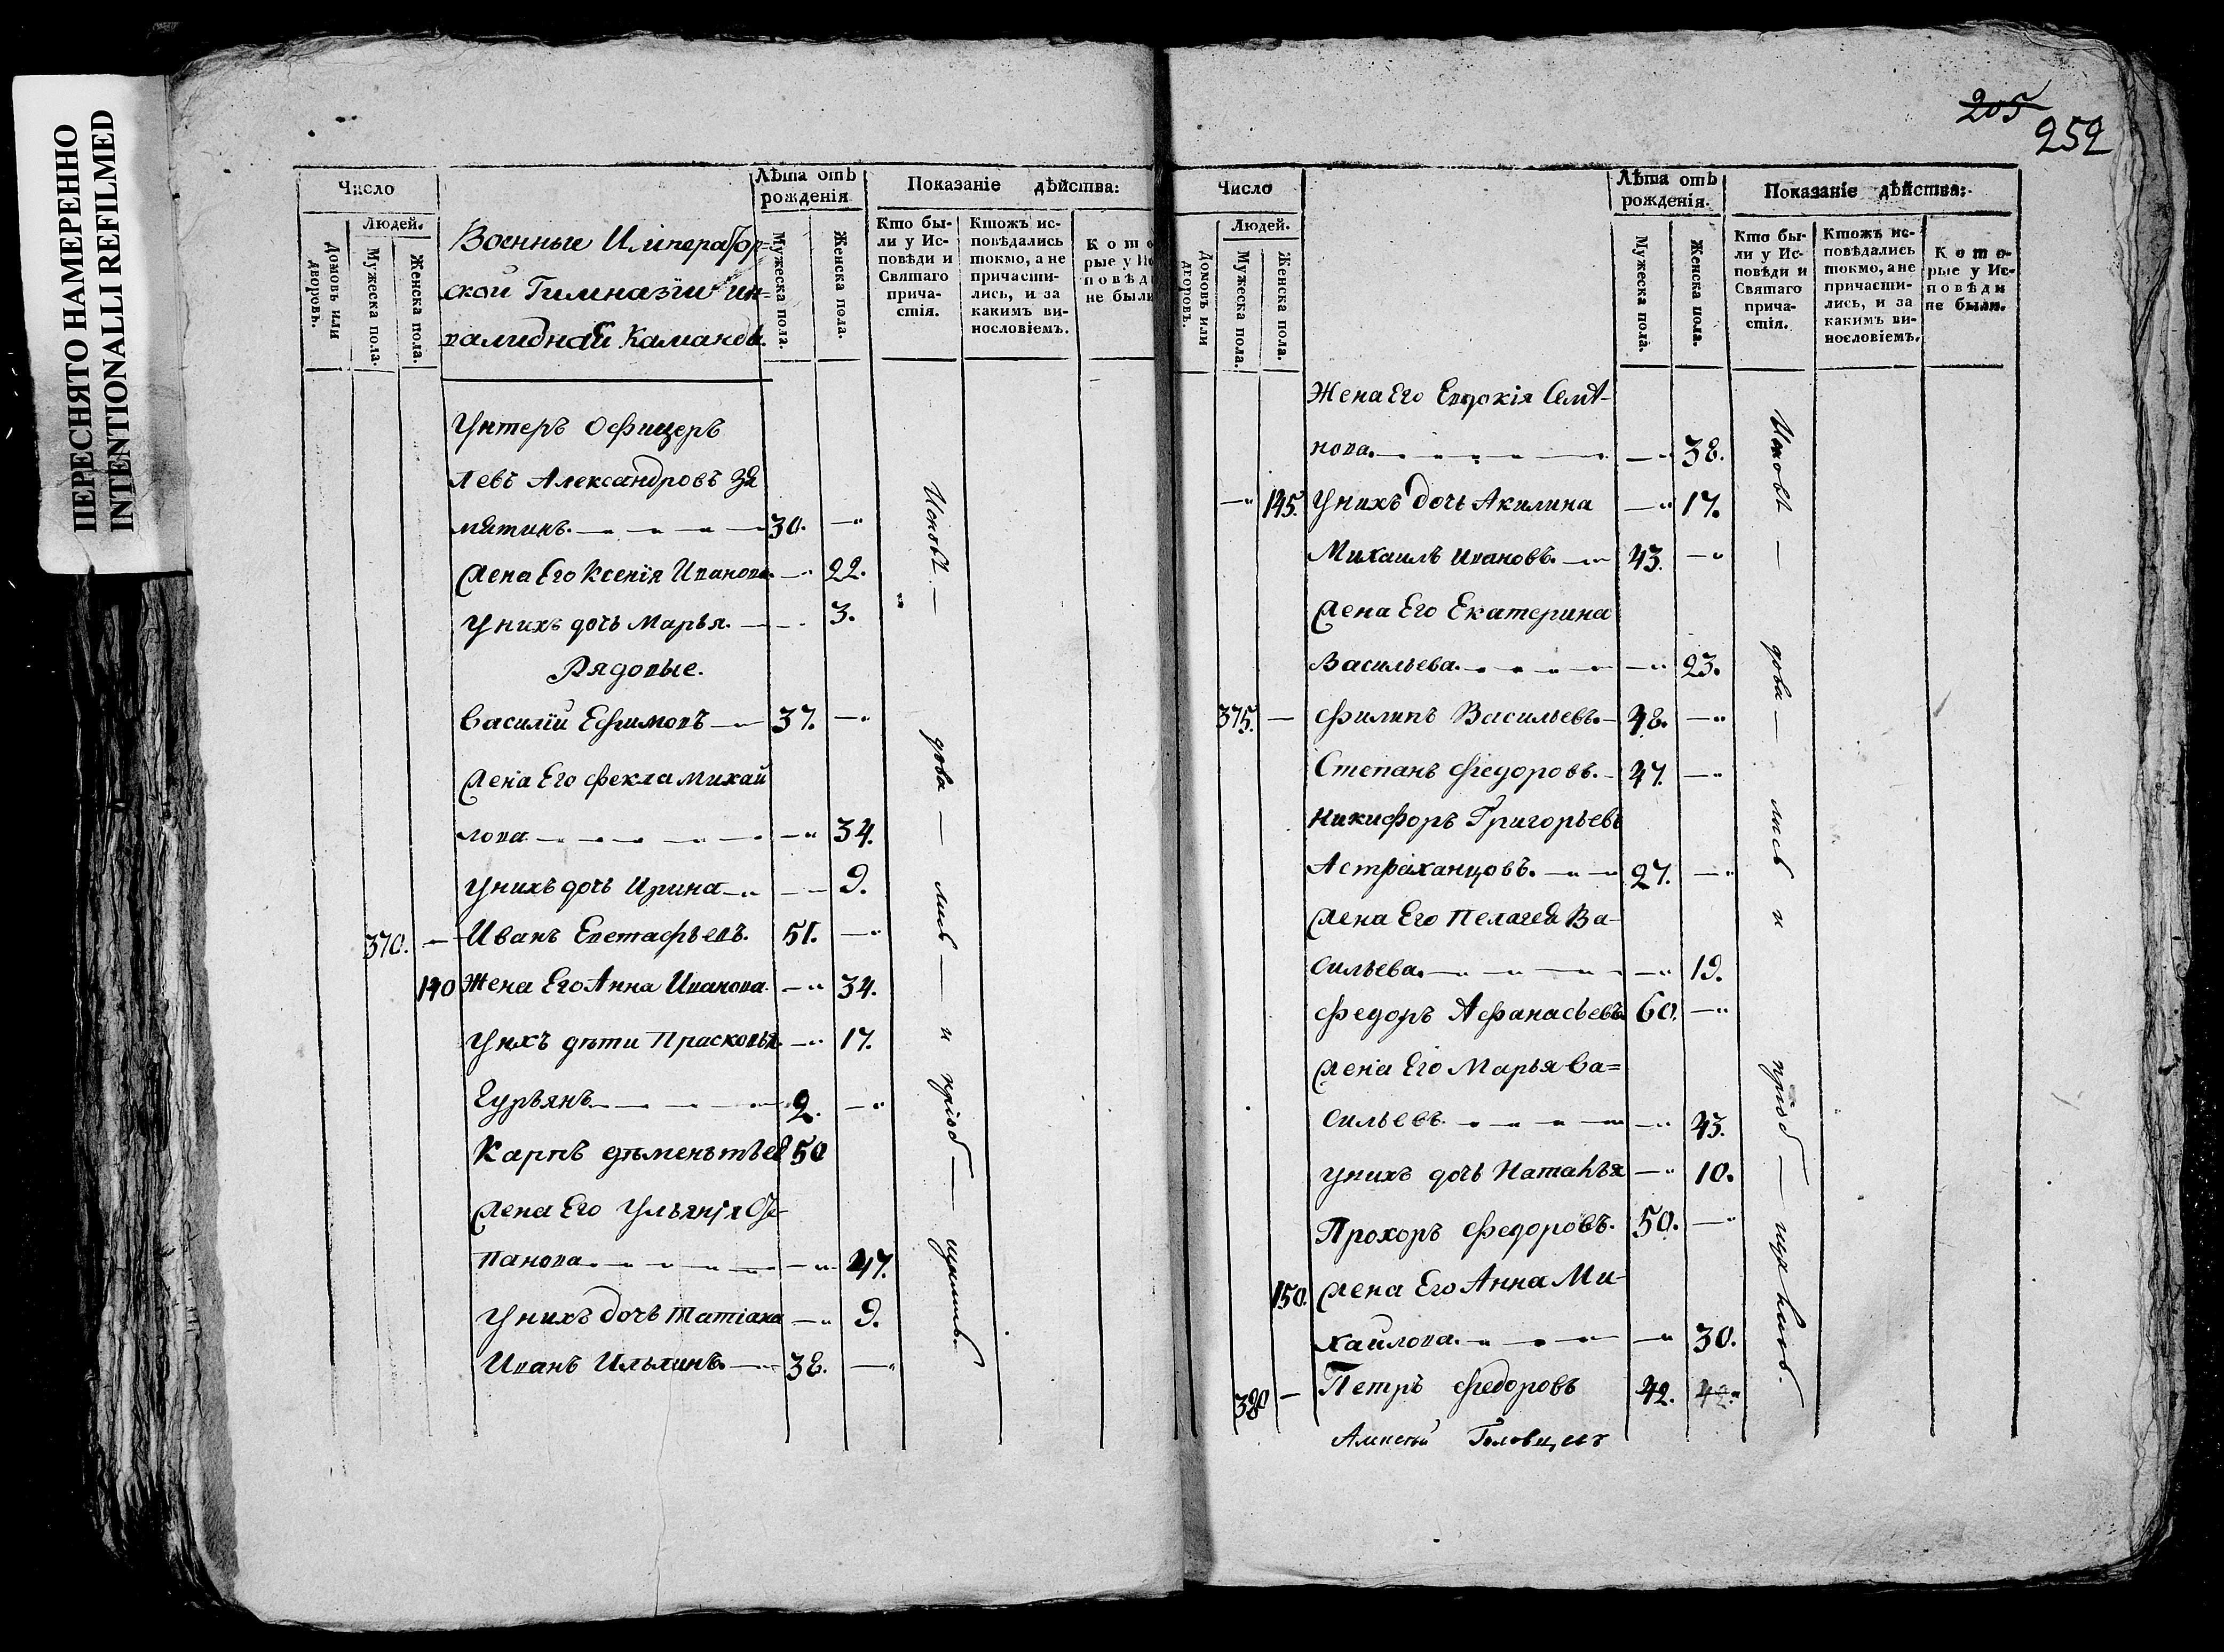 ПЕРЕСНЯТО НАМЕРЕННО
INTENTIONALLI REFILMED
205
252
Число
Людей.
Домовъ или дворовъ.
Мужеска пола.
Женска пола.
Военные Император=
ской Гимназіи ин=
валидной Каманды.
Лѣта отъ рожденія
Мужеска пола.
Женска пола.
Показаніе дѣйства:
Кто бы-
ли у Ис-
повѣди и
Святаго
прича-
стія.
Ктожъ ис-
повѣдались
токмо, а не
причасти-
лись, и за
какимъ ви-
нословіемъ.
Кото
рые у Ис
повѣд
не были
Унтеръ Офицеръ
Левъ Александровъ За
мятинъ. 30.
Жена Его Ксенія Иванова. 22.
У нихъ дочь Марья. 3.
Рядовые.
Василій Ефимовъ 37.
Жена Его Фекла Михай
лова 34.
У нихъ дочь Ирина 9.
370. Иванъ Евстафьевъ. 51.
140 Жена Его Анна Иванова. 34.
У нихъ дѣти Прасковья 17.
Гурьянъ 2.
Карпъ Дѣментьев 50
Жена Его Ульянія Сте-
панова 47.
У нихъ дочь Татіана 9.
Иванъ Ильинъ. 38.
Исповѣ — дова — лись — и пріоб — щились.
Число
Людей.
Домовъ или дворовъ.
Мужеска пола.
Женска пола.
Лѣта отъ рожденія.
Мужеска пола.
Женска пола.
Показаніе дѣйства:
Кто бы-
ли у Ис-
повѣди и
Святаго
прича-
стія.
Ктожъ ис-
повѣдались
токмо, а не
причасти-
лись, и за
какимъ ви-
нословіемъ.
Кото-
рые у Ис-
повѣди
не были.
Жена Его Евдокія Семѣ-
нова. 38.
145. У нихъ дочь Акилина 17.
Михаилъ Ивановъ. 43.
Жена Его Екатерина
Васильева. 23.
375. Филипъ Васильевъ. 48.
Степанъ Федоровъ. 47.
Никифоръ Григорьевъ
Астраханцовъ. 27.
Жена Его Пелагея Ва-
сильева. 19.
Федоръ Афанасьевъ 60.
Жена Его Марья Ва=
сильевъ. 43.
У нихъ дочь Наталья 10.
Прохоръ Федоровъ. 50.
150. Жена Его Анна Ми-
хайлова. 30.
380 Петръ Федоровъ 42. 42.
Исповѣ — дова — лись и пріоб — щились.